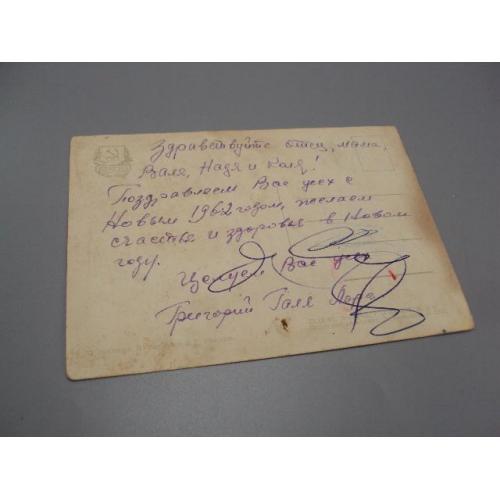 Здравствуйте отец, мама,
Валя, Надя и Коля!
Поздравляем Вас усех с
Новым 1962 годом, желаем
счастья и здоровья в Новом
году.
Целуем Вас усех
Григорий Галя